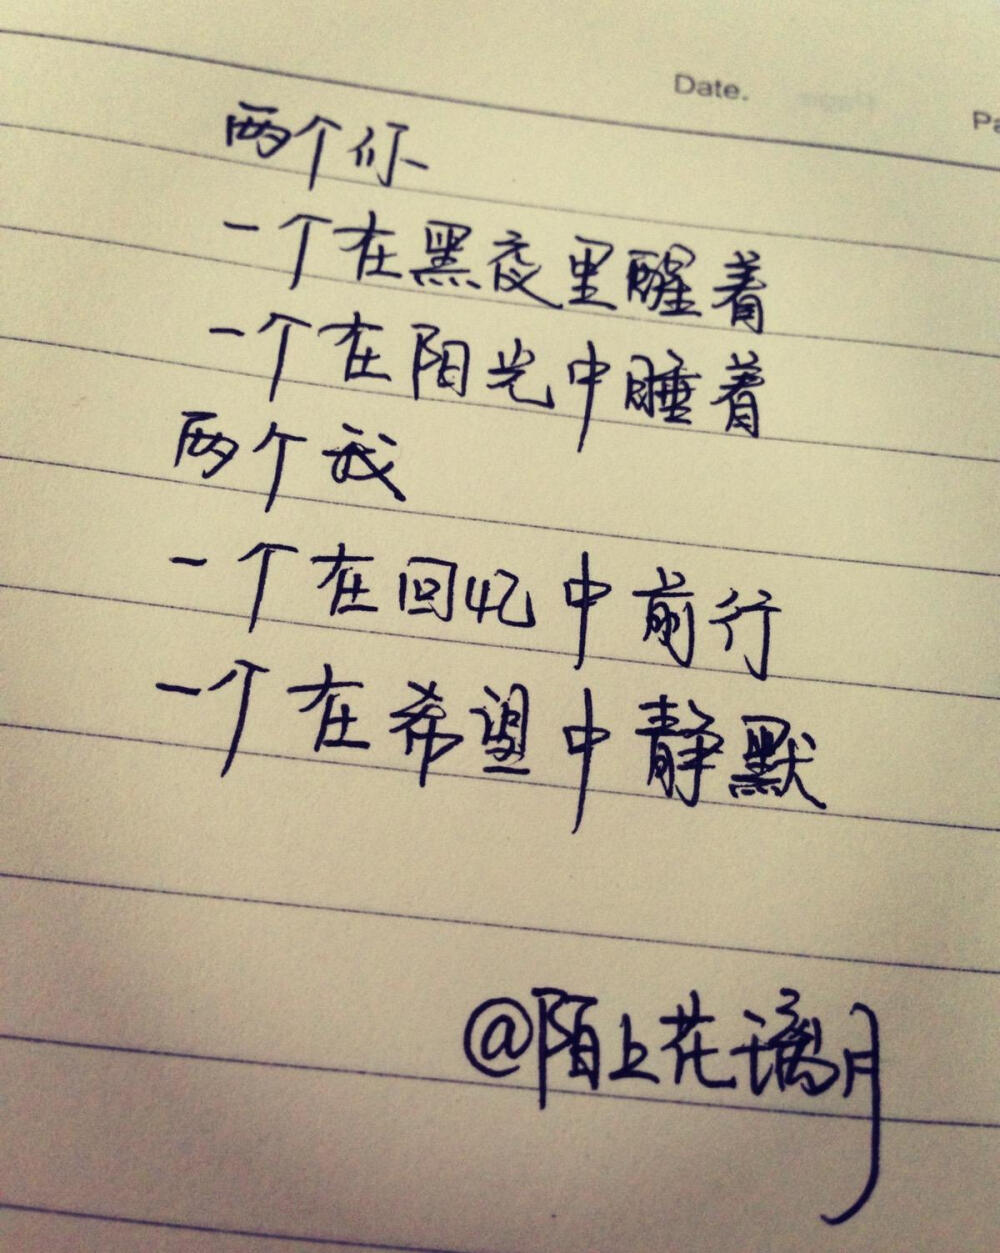 Date.
Pa
两个你
一个在黑夜里醒着
一个在阳光中睡着
两个我
一个在回忆中前行
一个在希望中静默
@陌上花璃月